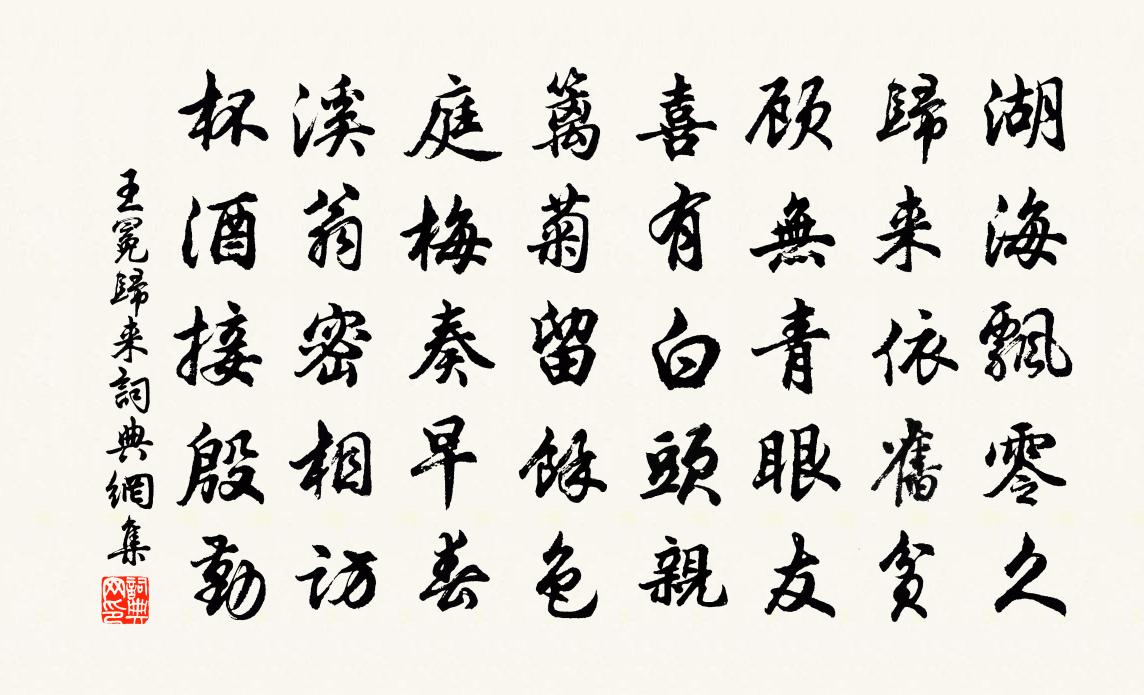 湖海飄零久
歸来依舊貧
顾無青眼友
喜有白頭親
籬菊留餘色
庭梅奏早春
溪翁密相訪
杯酒接殷勤
王冕歸来詞典網集
詞典网印